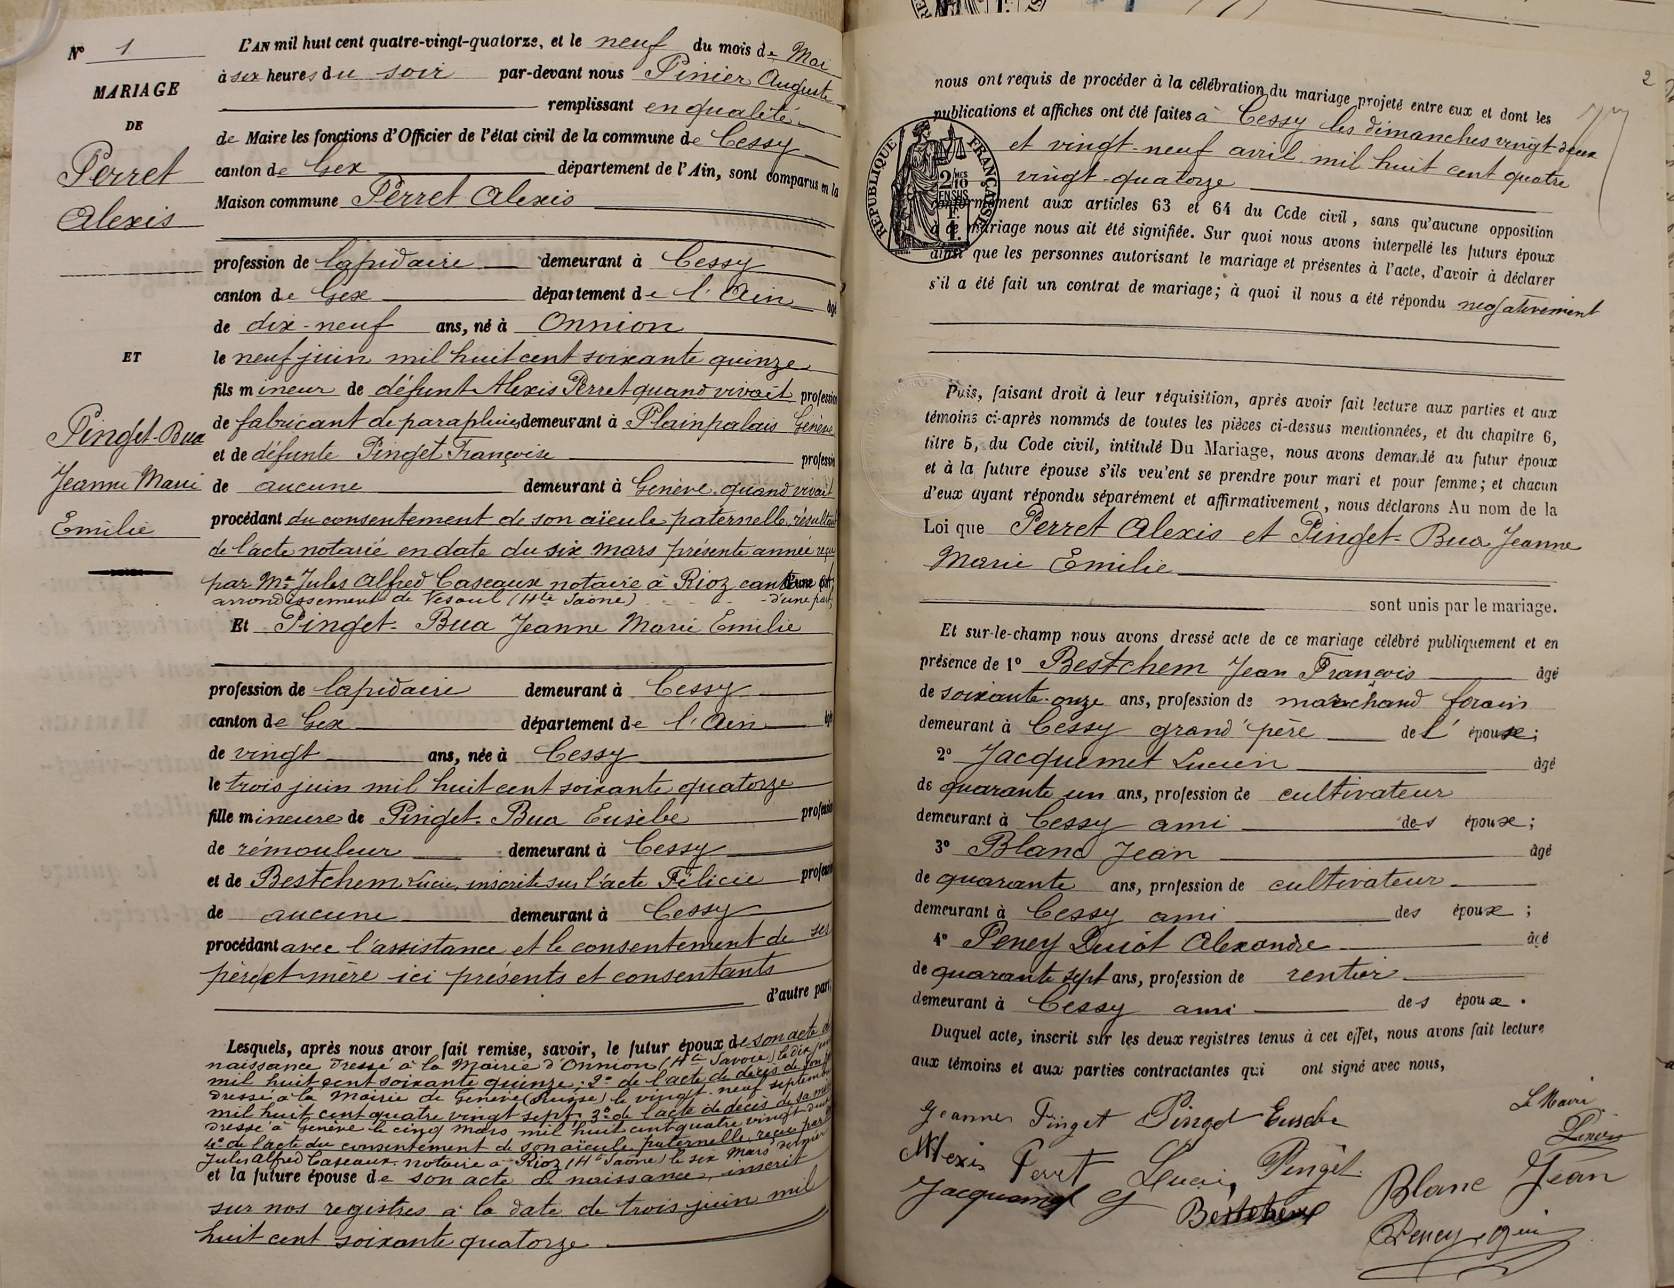 N° 1
MARIAGE
DE
Perret
Alexis
ET
Pinget-Bua
Jeanne Marie
Emilie
L'AN mil huit cent quatre-vingt-quatorze, et le neuf du mois de Mai
à six heures du soir par-devant nous Pinier Auguste
remplissant en qualité
de Maire les fonctions d'Officier de l'état civil de la commune de Cessy
canton de Gex département de l'Ain, sont comparus en la
Maison commune Perret Alexis
profession de lapidaire demeurant à Cessy
canton de Gex département de l'Ain âgé
de dix-neuf ans, né à Onnion
le neuf juin mil huit cent soixante quinze
fils mineur de défunt Alexis Perret quand vivait profession
de fabricant de parapluies demeurant à Plainpalais Genève
et de défunte Pinget Françoise profession
de aucune demeurant à Genève quand vivait
procédant du consentement de son aïeule paternelle, résultant
de l'acte notarié en date du six mars présente année reçu
par Me Jules Alfred Caseaux notaire à Rioz canton
arrondissement de Vesoul (Hte Saône) d'une part,
Et Pinget-Bua Jeanne Marie Emilie
profession de lapidaire demeurant à Cessy
canton de Gex département de l'Ain âgé
de vingt ans, née à Cessy
le trois juin mil huit cent soixante quatorze
fille mineure de Pinget-Bua Eusèbe profession
de rémouleur demeurant à Cessy
et de Bestchem Lucie, inscrite sur l'acte Félicie profession
de aucune demeurant à Cessy
procédant avec l'assistance et le consentement de ses
père et mère ici présents et consentants
d'autre part
Lesquels, après nous avoir fait remise, savoir, le futur époux de son acte de
naissance dressé à la Mairie d'Onnion (Hte Savoie) le dix juin
mil huit cent soixante quinze; 2° de l'acte de décès de son père
dressé à la Mairie de Genève (Suisse) le vingt-neuf septembre
mil huit cent quatre vingt sept; 3° de l'acte de décès de sa mère
dressé à Genève le cinq mars mil huit cent quatre vingt
4° de l'acte du consentement de son aïeule paternelle, reçu par Me
Jules Alfred Caseaux notaire à Rioz (Hte Saône) le six mars dernier
et la future épouse de son acte de naissance, inscrit
sur nos registres à la date de trois juin mil
huit cent soixante quatorze
2
nous ont requis de procéder à la célébration du mariage projeté entre eux et dont les
publications et affiches ont été faites à Cessy les dimanches vingt-deux
et vingt-neuf avril mil huit cent quatre
vingt-quatorze
RÉPUBLIQUE FRANÇAISE
2/10 EN SUS
conformément aux articles 63 et 64 du Code civil, sans qu'aucune opposition
à ce mariage nous ait été signifiée. Sur quoi nous avons interpellé les futurs époux
ainsi que les personnes autorisant le mariage et présentes à l'acte, d'avoir à déclarer
s'il a été fait un contrat de mariage; à quoi il nous a été répondu négativement
Puis, faisant droit à leur réquisition, après avoir fait lecture aux parties et aux
témoins ci-après nommés de toutes les pièces ci-dessus mentionnées, et du chapitre 6,
titre 5, du Code civil, intitulé Du Mariage, nous avons demandé au futur époux
et à la future épouse s'ils veulent se prendre pour mari et pour femme; et chacun
d'eux ayant répondu séparément et affirmativement, nous déclarons Au nom de la
Loi que Perret Alexis et Pinget-Bua Jeanne
Marie Emilie
sont unis par le mariage.
Et sur-le-champ nous avons dressé acte de ce mariage célébré publiquement et en
présence de 1° Bestchem Jean François âgé
de soixante-onze ans, profession de marchand forain
demeurant à Cessy grand'père de l'épouse;
2° Jacquemet Lucien âgé
de quarante un ans, profession de cultivateur
demeurant à Cessy ami des époux;
3° Blanc Jean âgé
de quarante ans, profession de cultivateur
demeurant à Cessy ami des époux;
4° Peney Alexandre âgé
de quarante sept ans, profession de rentier
demeurant à Cessy ami des époux.
Duquel acte, inscrit sur les deux registres tenus à cet effet, nous avons fait lecture
aux témoins et aux parties contractantes qui ont signé avec nous,
Jeanne Pinget Pinget Eusebe Le Maire
Pinier
Alexis Perret Lucie Pinget Blanc Jean
Jacquemet Bestchem
Peney